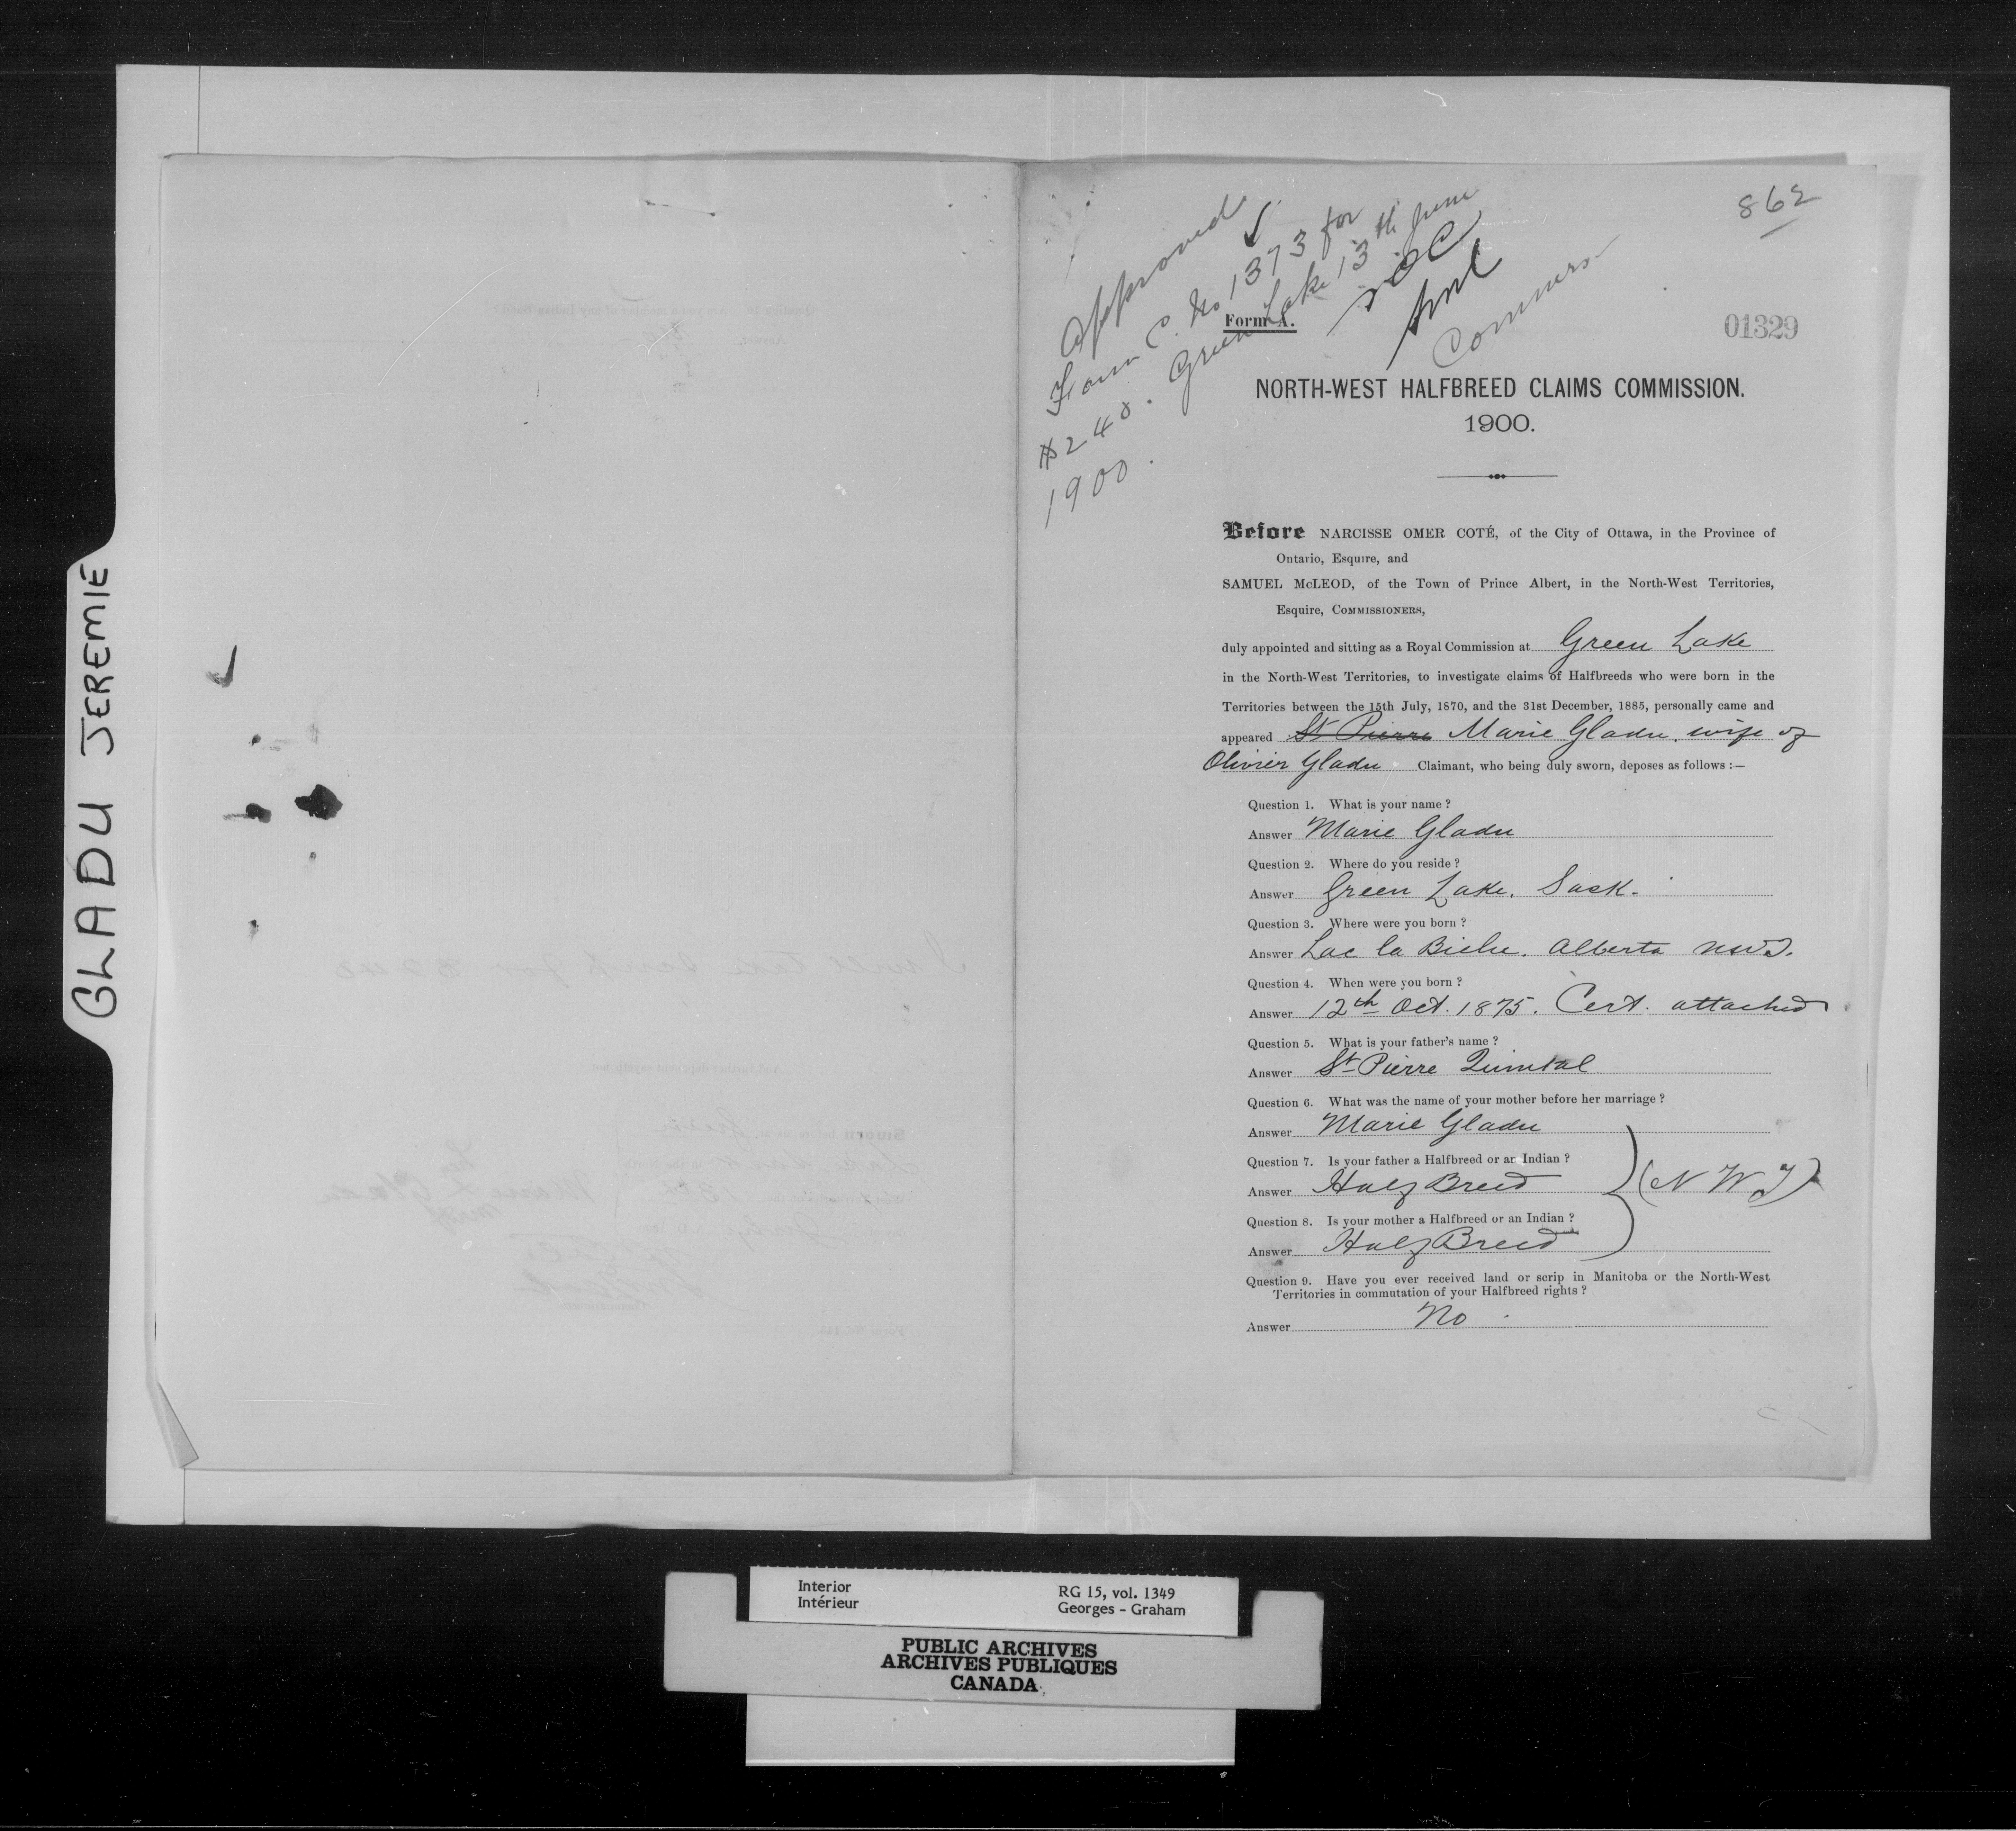 GLADU JEREMIE
862
Approved
Form C. No 1373 for
$240. Green Lake 13th June
1900.
NOC
Commrs
Form A.
01329
NORTH-WEST HALFBREED CLAIMS COMMISSION.
1900.
Before NARCISSE OMER COTÉ, of the City of Ottawa, in the Province of
Ontario, Esquire, and
SAMUEL McLEOD, of the Town of Prince Albert, in the North-West Territories,
Esquire, COMMISSIONERS,
duly appointed and sitting as a Royal Commission at Green Lake
in the North-West Territories, to investigate claims of Halfbreeds who were born in the
Territories between the 15th July, 1870, and the 31st December, 1885, personally came and
appeared St Pierre Marie Gladu, wife of
Olivier Gladu Claimant, who being duly sworn, deposes as follows :—
Question 1. What is your name ?
Answer Marie Gladu
Question 2. Where do you reside ?
Answer Green Lake. Sask.
Question 3. Where were you born ?
Answer Lac la Biche. Alberta NWT.
Question 4. When were you born ?
Answer 12th Oct. 1875. Cert. attached
Question 5. What is your father's name ?
Answer St Pierre Quintal
Question 6. What was the name of your mother before her marriage ?
Answer Marie Gladu
Question 7. Is your father a Halfbreed or an Indian ?
Answer Half Breed (N W T)
Question 8. Is your mother a Halfbreed or an Indian ?
Answer Half Breed
Question 9. Have you ever received land or scrip in Manitoba or the North-West
Territories in commutation of your Halfbreed rights ?
Answer No.
Interior
Intérieur
RG 15, vol. 1349
Georges - Graham
PUBLIC ARCHIVES
ARCHIVES PUBLIQUES
CANADA